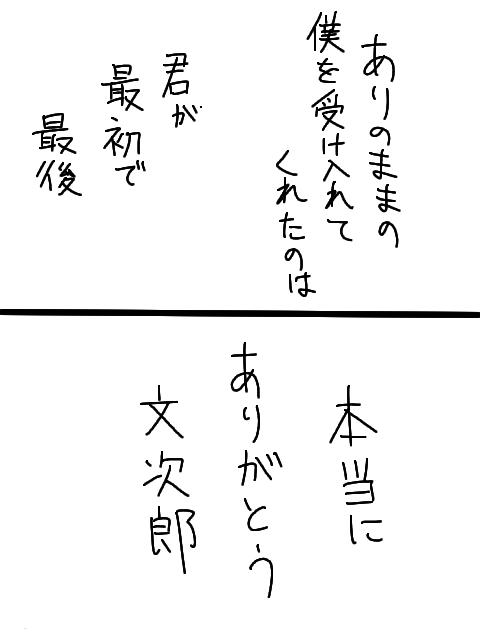 ありのままの
僕を受け入れて
くれたのは
君が
最初で
最後
本当に
ありがとう
文次郎